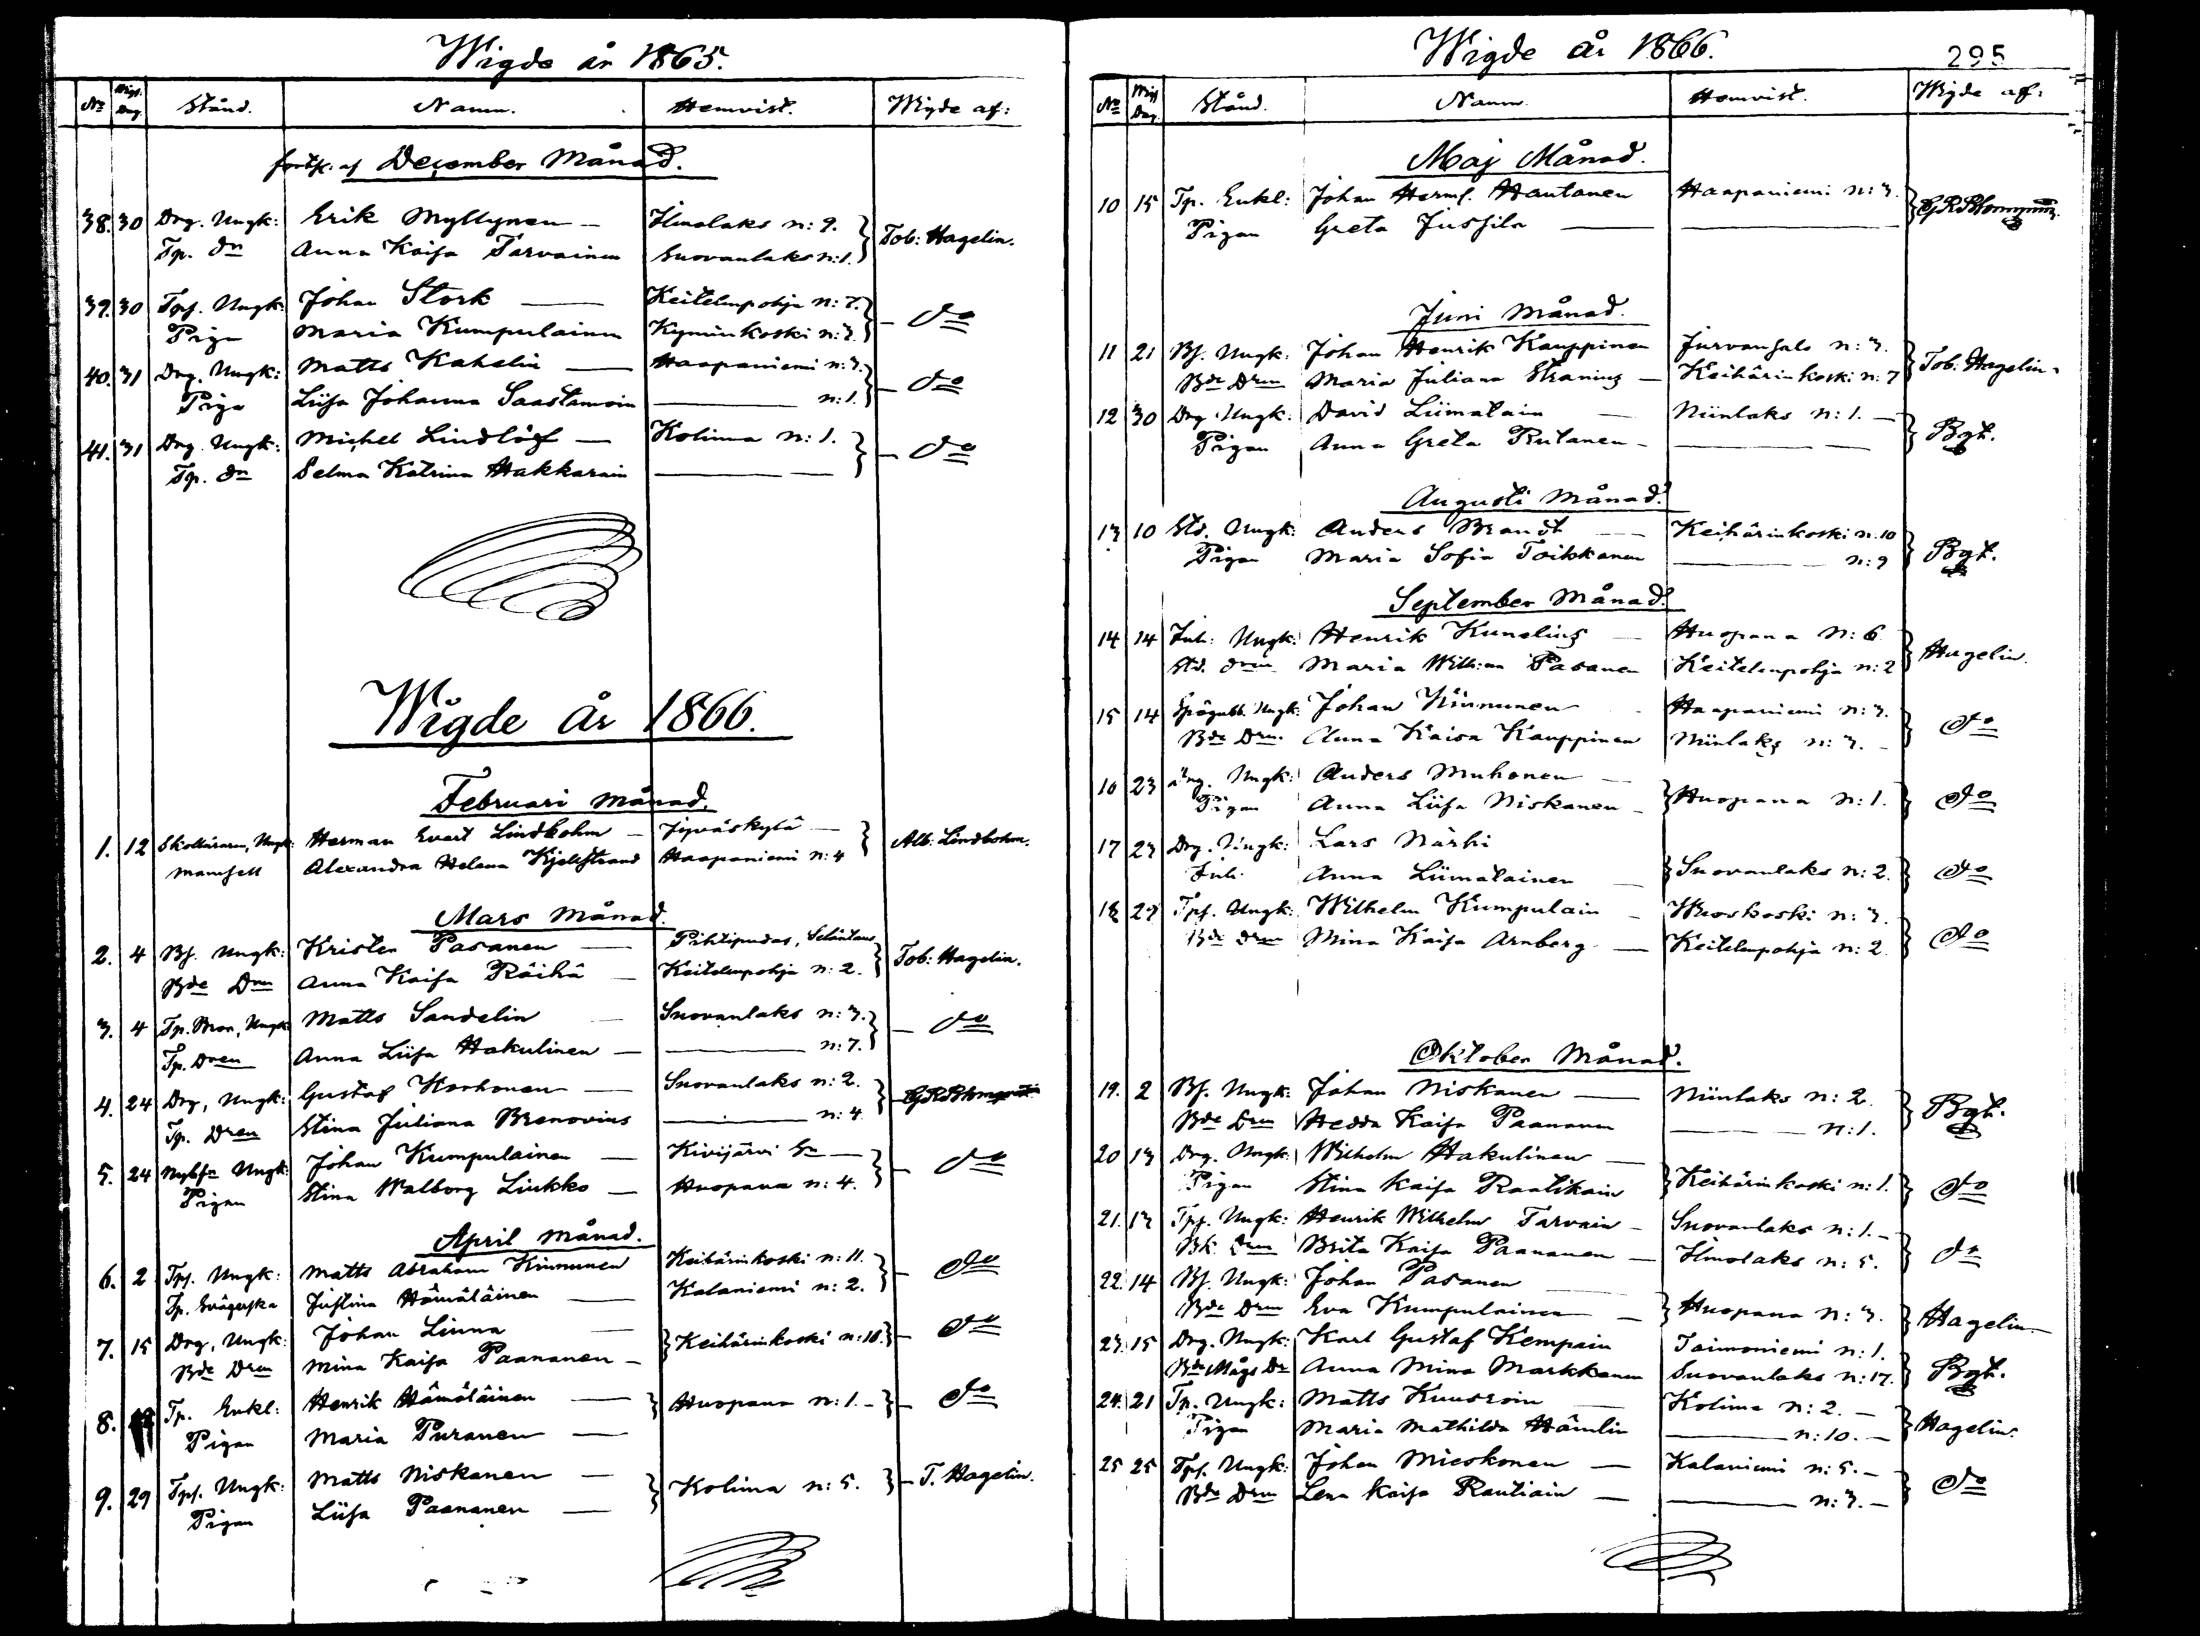 Wigde år 1865.
No Wigs. Dag. Stånd. Namn. Hemvist. Wigde af:
forts. af December Månad.
38. 30 Drg. Ungk: Erik Myllynen — Ilmolaks n: 9. } Tob: Hagelin.
Tp. dn Anna Kaisa Tarvainen Suovanlaks n: 1.
39. 30 Tpf. Ungk: Johan Stork — Keitelenpohja n: 7. } — do
Piga Maria Kumpulainen Kyminkoski n: 3.
40. 31 Drg. Ungk: Matts Kahelin — Haapaniemi n: 3. } — do
Piga Liisa Johanna Saastamoin — n: 1.
41. 31 Drg. Ungk: Michel Lindlöf — Kolima n: 1. } — do
Tp. dn Selma Katrina Hakkarain —
Wigde år 1866.
Februari månad.
1. 12 Skolläraren, Ungk: Herman Evert Lindbohm — Jyväskylä — } Alb: Lindbohm.
Mamsell Alexandra Helena Kjellstrand Haapaniemi n: 4
Mars månad.
2. 4 Bf. Ungk: Krister Pasanen — Pihtipudas, Seläntaus } Tob: Hagelin.
Bde Dren Anna Kaisa Räihä — Keitelenpohja n: 2.
3. 4 Tp. Mon, Ungk: Matts Sandelin — Suovanlaks n: 3. } — do
Tp. Dren Anna Liisa Hakulinen — — n: 7.
4. 24 Drg, Ungk: Gustaf Korhonen — Suovanlaks n: 2. } G R Blomqvist
Tp. Dren Stina Juliana Brenovius — n: 4.
5. 24 Nybfn Ungk: Johan Kumpulainen — Kivijärvi Sn — } — do
Pigan Stina Walborg Liukko — Huopana n: 4.
April månad.
6. 2 Tpf. Ungk: Matts Abraham Kinnunen Keihärinkoski n: 11. } — do
Tp. Svägerska Justina Hämäläinen — Kalaniemi n: 2.
7. 15 Drg, Ungk: Johan Linna — } Keihärinkoski n: 10. } — do
Bde Dren Mina Kaisa Paananen —
8. Tp. Enkl: Henrik Hämäläinen — } Huopana n: 1. — } — do
Pigan Maria Puranen —
9. 29 Tpf. Ungk: Matts Niskanen — } Kolima n: 5. } — T. Hagelin.
Pigan Liisa Paananen —
Wigde år 1866. 295
No Wigs Dag. Stånd. Namn. Hemvist. Wigde af:
Maj Månad.
10 15 Tp. Enkl: Johan Herms. Hautanen Haapaniemi n: 3. } G R Blomqvist
Pigan Greta Jussila — —
Juni månad.
11 21 Bf. Ungk: Johan Henrik Kauppinen Jurvansalo n: 3. } Tob: Hagelin.
Bde Dren Maria Juliana Straning — Keihärinkoski n: 7
12 30 Drg Ungk: David Liimatain — Niinlaks n: 1. — } Bqt.
Pigan Anna Greta Rutanen — —
Augusti månad.
13 10 Std. Ungk: Anders Brandt — Keihärinkoski n. 10 } Bqt.
Pigan Maria Sofia Toikkanen — n: 9
September Månad.
14 14 Inh: Ungk: Henrik Kunelius — Huopana n: 6 } Hagelin.
Std. dren Maria Wilh:na Pasanen Keitelenpohja n: 2
15 14 Spågubb. Ungk: Johan Kinnunen Haapaniemi n: 3. } do
Bde Drn. Anna Kaisa Kauppinen Niinlaks n: 3. —
16 23 Drg. Ungk: Anders Muhonen — } Huopana n: 1. } do
Pigan Anna Liisa Niskanen —
17 23 Drg. Ungk: Lars Närhi } Suovanlaks n: 2. } do
Inh. Anna Liimatainen —
18 29 Tpf. Ungk: Wilhelm Kumpulain — Wuoskoski n: 3. } do
Bde dren Mina Kaisa Arnberg — Keitelenpohja n: 2
Oktober Månad.
19. 2 Bf. Ungk: Johan Niskanen — Niinlaks n: 2. } Bqt.
Bde Dren Hedda Kaisa Paananen — n: 1.
20 13 Drg. Ungk: Wilhelm Hakulinen — } Keihärinkoski n: 1. } do
Pigan Stina Kaisa Raatikain
21. 13 Tpf. Ungk: Henrik Wilhelm Tarvain — Suovanlaks n: 1. — } do
Bk. Dren Brita Kaisa Paananen — Ilmolaks n: 5.
22. 14 Bf. Ungk: Johan Pasanen — } Huopana n: 3. } Hagelin —
Bde Dren Eva Kumpulainen —
23. 15 Drg. Ungk: Karl Gustaf Kempain Taimoniemi n: 1. } Bqt.
Bde Mågs Dr Anna Mina Markkanen Suovanlaks n: 17.
24. 21 Tp. Ungk: Matts Kuusroin — Kolima n: 2. — } Hagelin.
Pigan Maria Mathilda Hämlin — n: 10. —
25 25 Tpf. Ungk: Johan Mieskonen — Kalaniemi n: 5. — } do
Bde Dren Lena Kaisa Rautiain — — n: 3. —